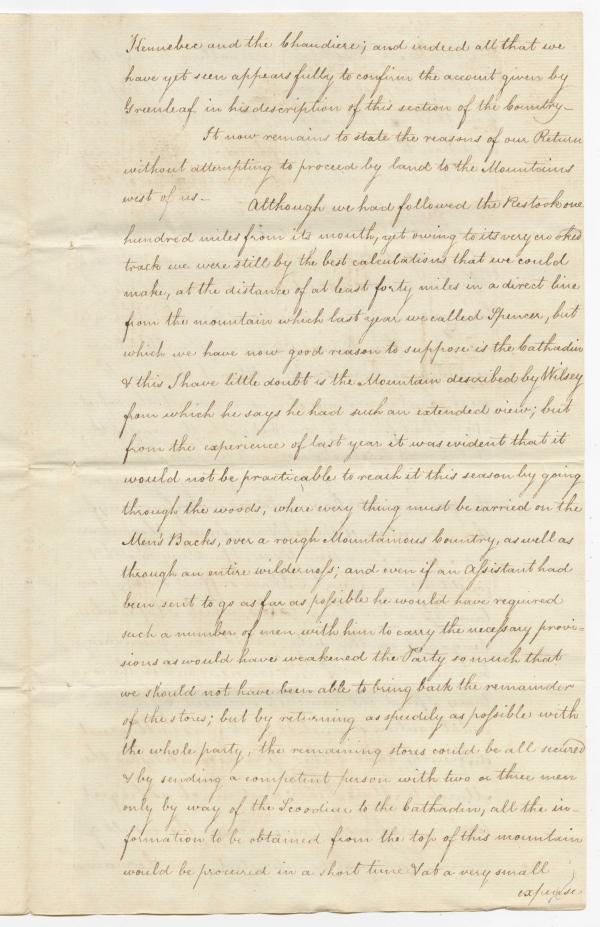 Kennebec and the Chaudiere; and indeed all that we
have yet seen appears fully to confirm the account given by
Greenleaf in his description of this section of the Country—
It now remains to state the reasons of our Return
without attempting to proceed by land to the Mountains
west of us— Although we had followed the Restook one
hundred miles from its mouth, yet owing to its very crooked
track we were still by the best calculations that we could
make, at the distance of at least forty miles in a direct line
from the mountain which last year we called Spencer, but
which we have now good reason to suppose is the Cathadin
& this I have little doubt is the Mountain described by Wilsey
from which he says he had such an extended view; but
from the experience of last year it was evident that it
would not be practicable to reach it this season by going
through the woods, where every thing must be carried on the
Men's Backs, over a rough Mountainous Country, as well as
through an entire wilderneſs; and even if an Aſsistant had
been sent to go as far as poſsible he would have required
such a number of men with him to carry the neceſsary provi=
sions as would have weakened the Party so much that
we should not have been able to bring back the remainder
of the stores; but by returning as speedily as poſsible with
the whole party, the remaining stores could be all secured
& by sending a competent person with two or three men
only by way of the Scoodiac to the Cathadin, all the in-
formation to be obtained from the top of this mountain
would be procured in a short time & at a very small
expense